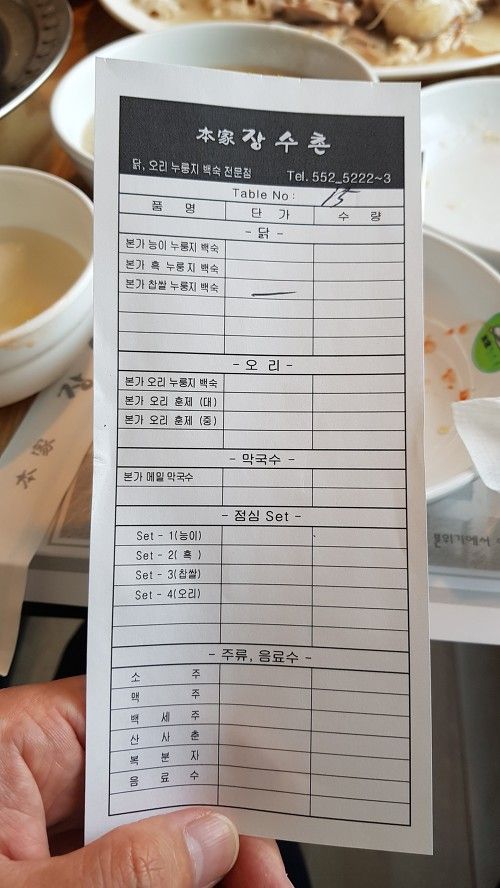 本家 장수촌
닭, 오리 누룽지 백숙 전문점 Tel. 552_5222~3
Table No : 15
품 명 단 가 수 량
- 닭 -
본가 능이 누룽지 백숙
본가 흑 누룽지 백숙
본가 찹쌀 누룽지 백숙
- 오 리 -
본가 오리 누룽지 백숙
본가 오리 훈제 (대)
본가 오리 훈제 (중)
- 막국수 -
본가 메밀 막국수
- 점심 Set -
Set - 1(능이)
Set - 2( 흑 )
Set - 3(찹쌀)
Set - 4(오리)
- 주류, 음료수 -
소 주
맥 주
백 세 주
산 사 춘
복 분 자
음 료 수
本家